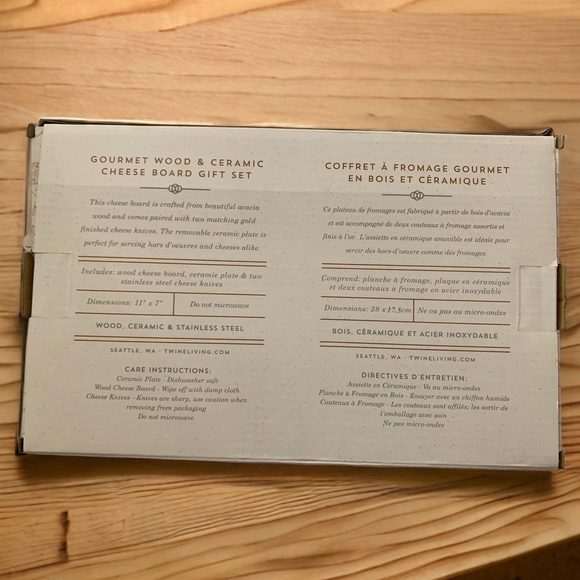 GOURMET WOOD & CERAMIC
CHEESE BOARD GIFT SET
This cheese board is crafted from beautiful acacia
wood and comes paired with two matching gold-
finished cheese knives. The removable ceramic plate is
perfect for serving hors d'oeuvres and cheeses alike.
Includes: wood cheese board, ceramic plate & two
stainless steel cheese knives
Dimensions: 11" x 7"
Do not microwave
WOOD, CERAMIC & STAINLESS STEEL
SEATTLE, WA · TWINELIVING.COM
CARE INSTRUCTIONS:
Ceramic Plate - Dishwasher safe
Wood Cheese Board - Wipe off with damp cloth
Cheese Knives - Knives are sharp, use caution when
removing from packaging
Do not microwave
COFFRET À FROMAGE GOURMET
EN BOIS ET CÉRAMIQUE
Ce plateau de fromages est fabriqué à partir de bois d'acacia
et est accompagné de deux couteaux à fromage assortis et
finis à l'or. L'assiette en céramique amovible est idéale pour
servir des hors-d'oeuvre comme des fromages.
Comprend: planche à fromage, plaque en céramique
et deux couteaux à fromage en acier inoxydable
Dimensions: 28 x 17,5cm
Ne va pas au micro-ondes
BOIS, CÉRAMIQUE ET ACIER INOXYDABLE
SEATTLE, WA · TWINELIVING.COM
DIRECTIVES D'ENTRETIEN:
Assiette en Céramique - Va au micro-ondes
Planche à Fromage en Bois - Essuyer avec un chiffon humide
Couteaux à Fromage - Les couteaux sont affilés; les sortir de
l'emballage avec soin
Ne pas micro-ondes